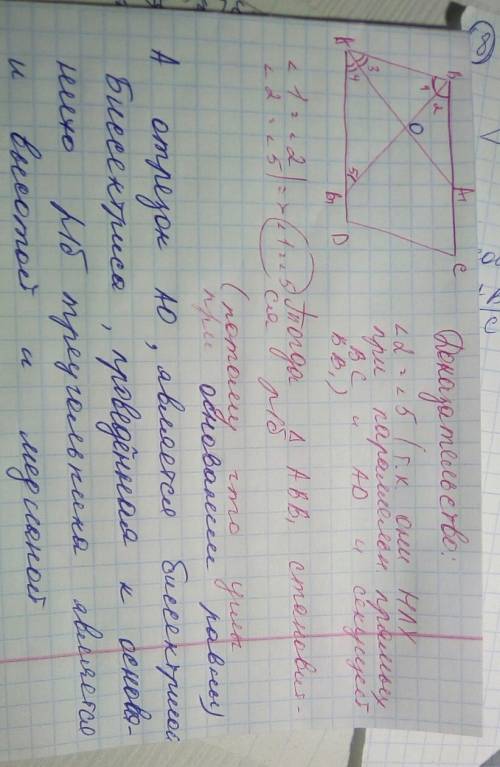 8
A
B
C
D
O
A1
B1
1
2
3
4
5
Доказательство:
∠2 = ∠5 (т.к они НЛУ
при параллел прямых
BC и AD и секущей
BB₁)
∠1 = ∠2
∠2 = ∠5 | => ∠1 = ∠5 Тогда Δ ABB₁ становит-
ся р/б
(потому что углы
при основании равны)
А отрезок AO, является биссектрисой
Биссектриса, проведённая к основа-
нию р/б треугольника является
и высотой и медианой